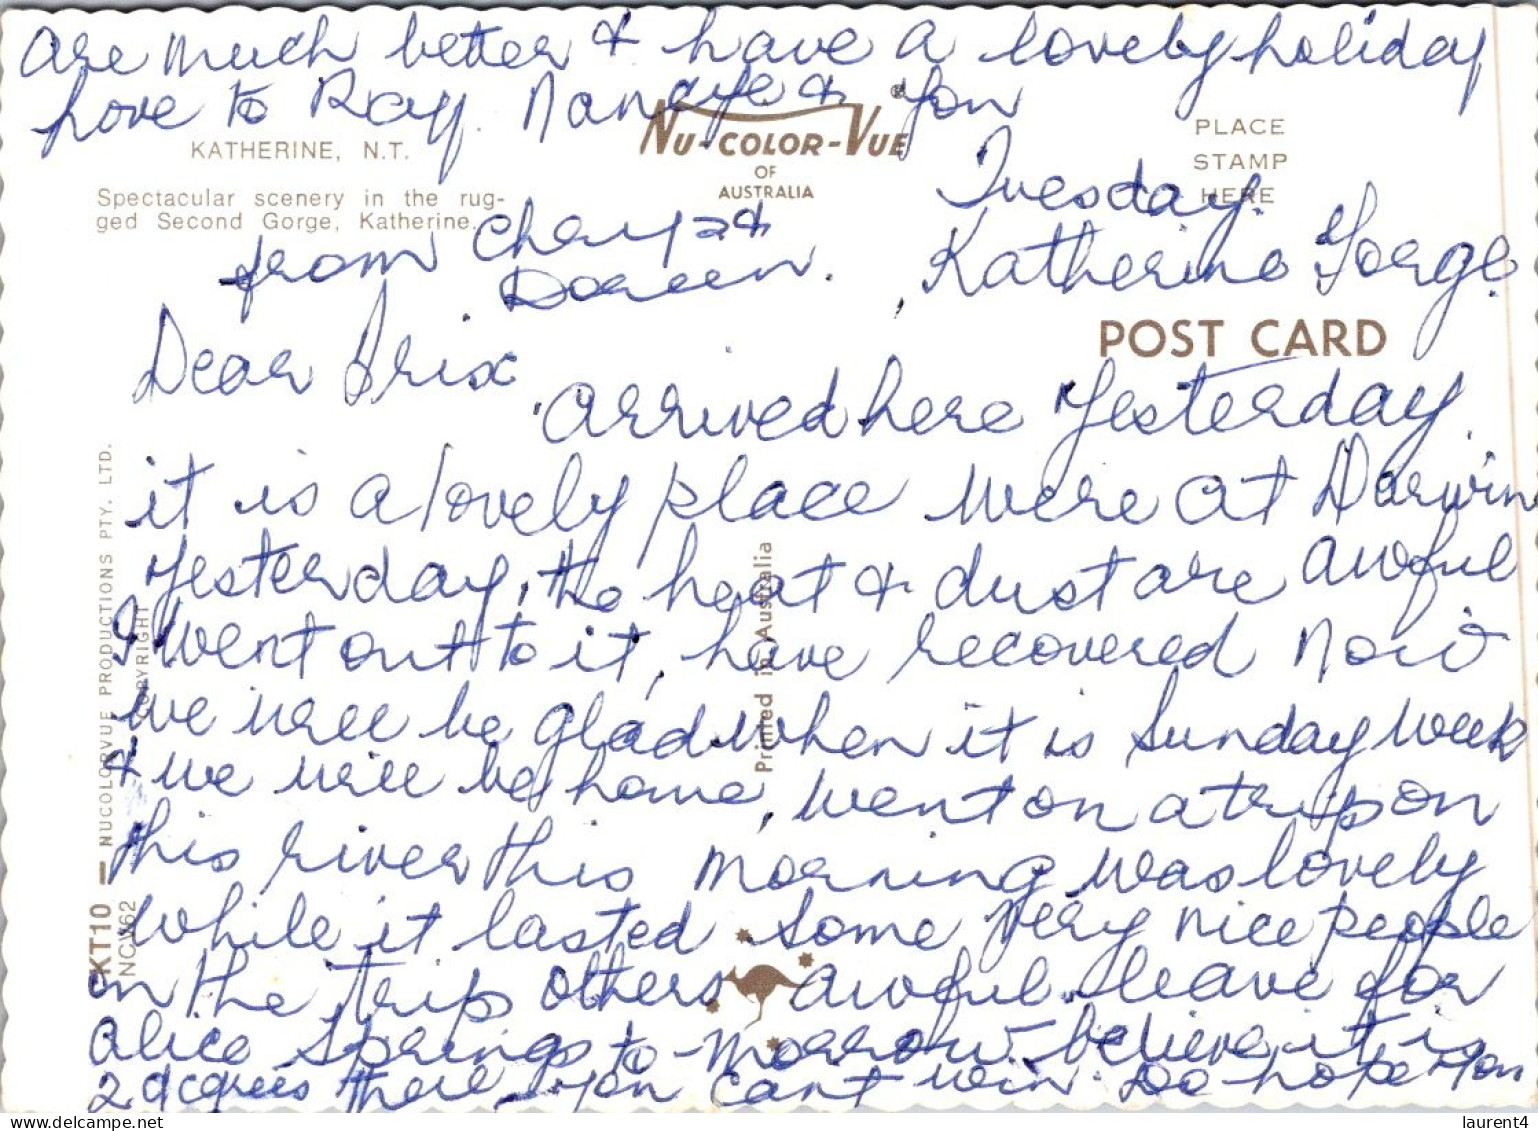 are much better & have a lovely holiday
Love to Ray, Nancye & you
KATHERINE, N.T.
NU-COLOR-VUE
OF
AUSTRALIA
PLACE
STAMP
HERE
Spectacular scenery in the rug-
ged Second Gorge, Katherine.
from Cheryl &
Doreen.
Tuesday.
Katherine Gorge.
POST CARD
Dear
arrived here Yesterday
it is a lovely place were at Darwin
Yesterday, the heat & dust are awful
I went out to it, have recovered now
we will be glad when it is Sunday week
& we will be home, went on a trip on
this river this morning was lovely
while it lasted some very nice people
on the trip others awful leave for
Alice Springs to-morrow believe it is
2 degrees there you cant win. Do hope you
NUCOLORVUE PRODUCTIONS PTY. LTD.
COPYRIGHT
KT10
NCV62
Printed in Australia
laurent4